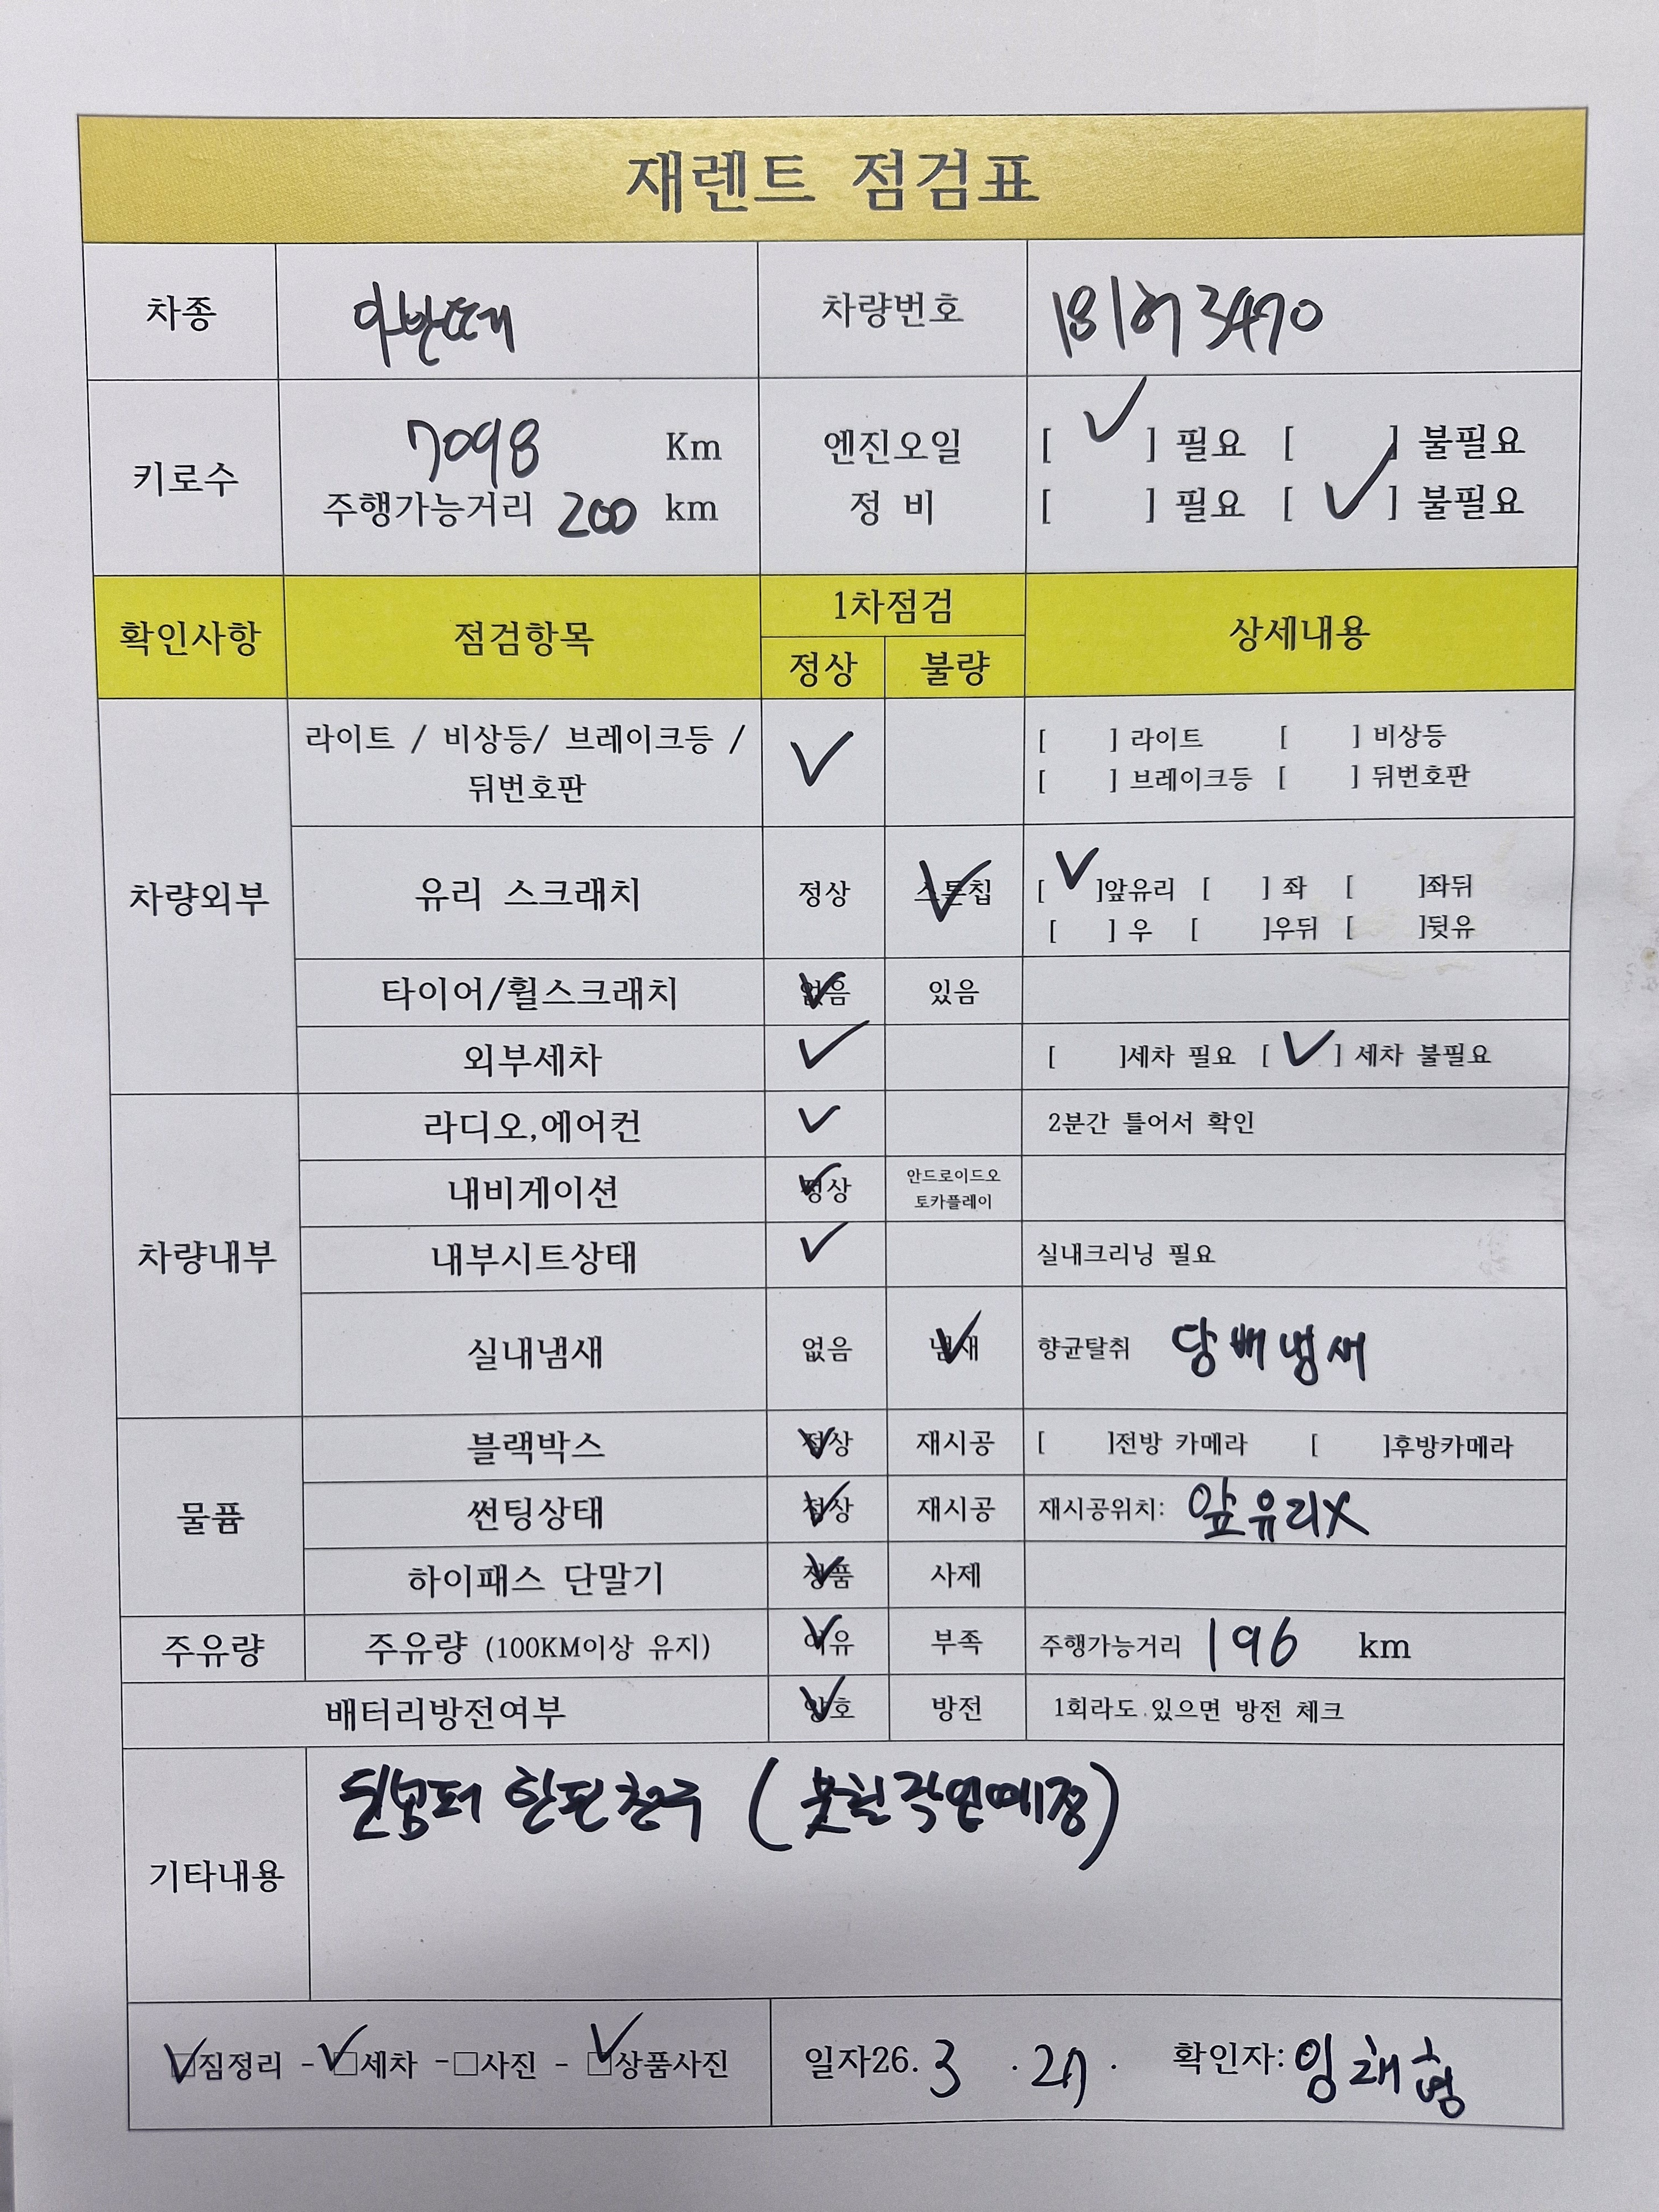 재렌트 점검표
차종 아반떼 차량번호 181허3470
키로수 7098 Km 엔진오일 [ ✓ ] 필요 [ ] 불필요
주행가능거리 200 km 정 비 [ ] 필요 [ ✓ ] 불필요
확인사항 점검항목 1차점검 상세내용
정상 불량
차량외부
라이트 / 비상등/ 브레이크등 / ✓ [ ] 라이트 [ ] 비상등
뒤번호판 [ ] 브레이크등 [ ] 뒤번호판
유리 스크래치 정상 스톤칩 ✓ [ ✓ ]앞유리 [ ] 좌 [ ]좌뒤
[ ] 우 [ ]우뒤 [ ]뒷유
타이어/휠스크래치 없음 ✓ 있음
외부세차 ✓ [ ]세차 필요 [ ✓ ] 세차 불필요
차량내부
라디오,에어컨 ✓ 2분간 틀어서 확인
내비게이션 정상 ✓ 안드로이드오
토카플레이
내부시트상태 ✓ 실내크리닝 필요
실내냄새 없음 냄새 ✓ 향균탈취 담배냄새
물품
블랙박스 정상 ✓ 재시공 [ ]전방 카메라 [ ]후방카메라
썬팅상태 정상 ✓ 재시공 재시공위치: 앞유리X
하이패스 단말기 정품 ✓ 사제
주유량 주유량 (100KM이상 유지) 여유 ✓ 부족 주행가능거리 196 km
배터리방전여부 양호 ✓ 방전 1회라도 있으면 방전 체크
기타내용 뒷범퍼 한판 (붓칠작업예정)
✓짐정리 - ✓세차 - □사진 - ✓상품사진 일자26. 3 . 27 . 확인자: 임채형